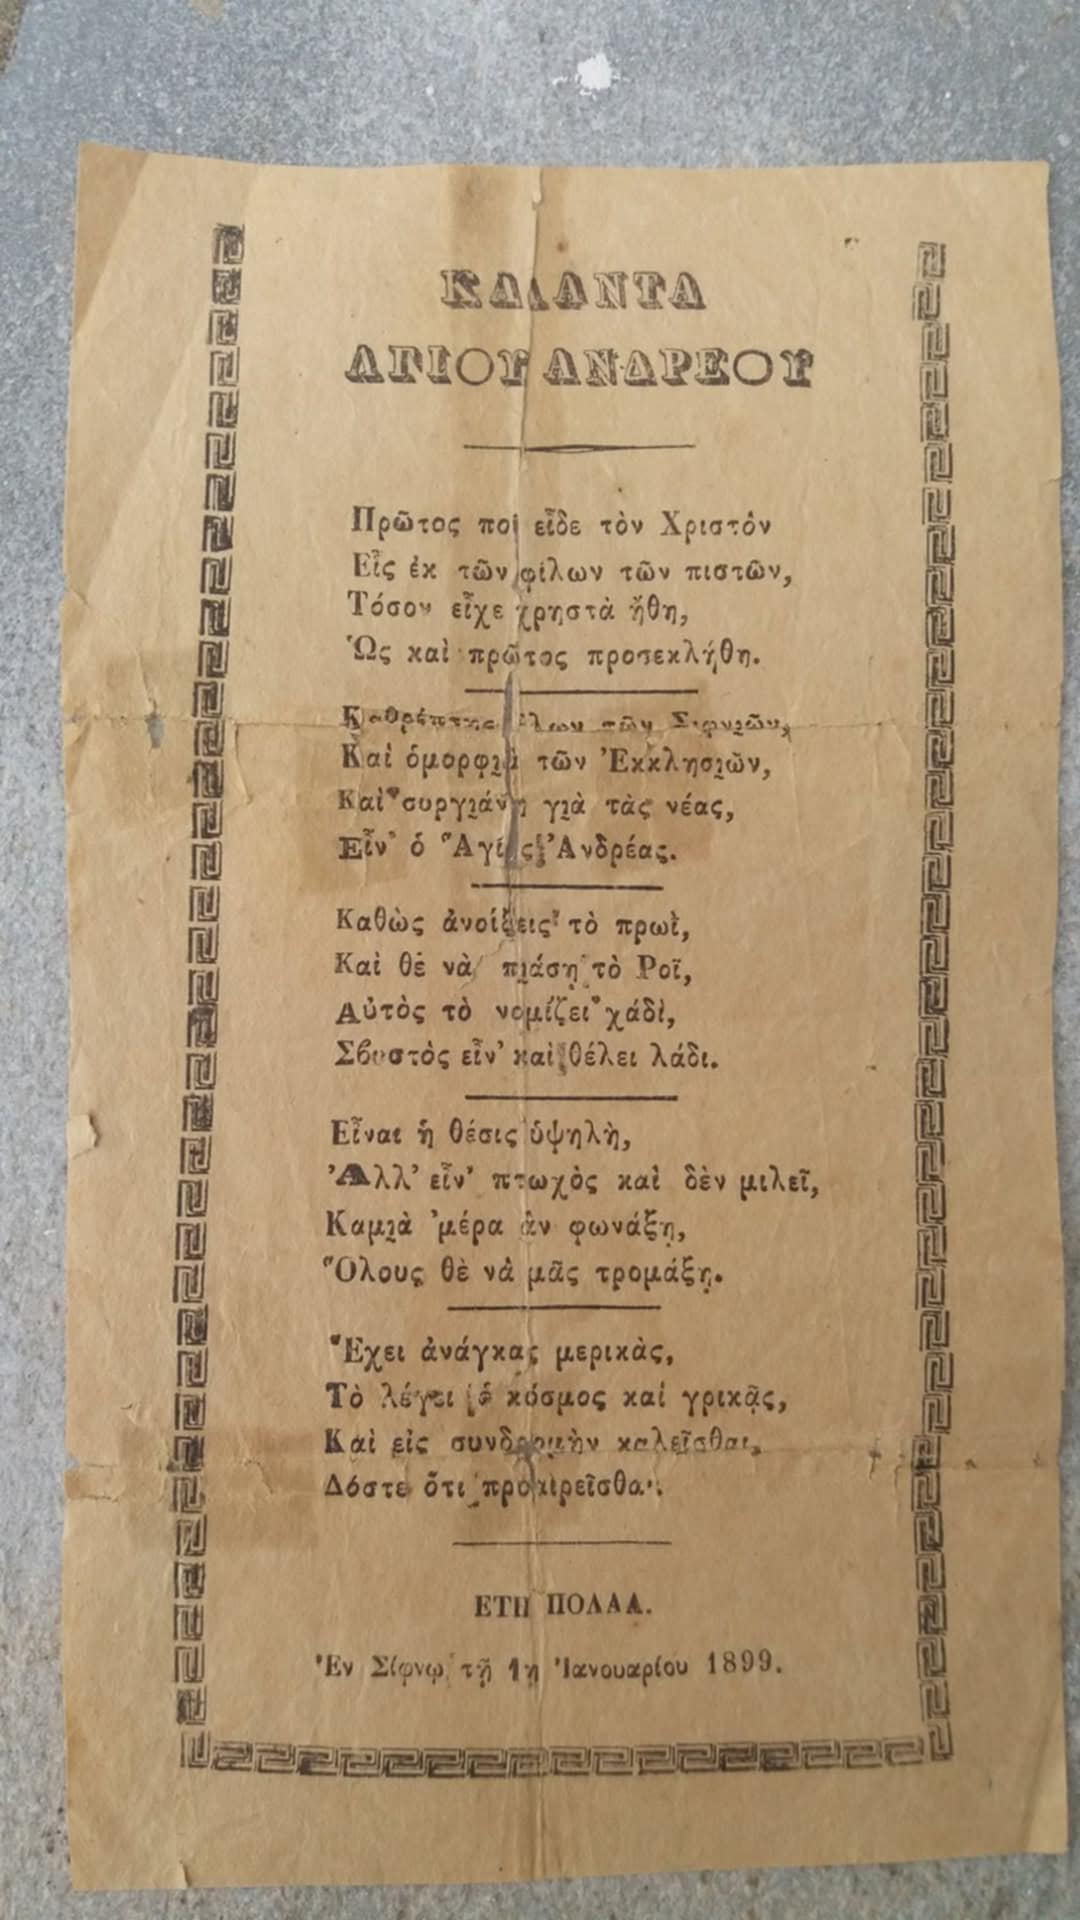 ΚΑΛΑΝΤΑ
ΑΓΙΟΥ ΑΝΔΡΕΟΥ
Πρῶτος ποῦ εἶδε τὸν Χριστὸν
Εἷς ἐκ τῶν φίλων τῶν πιστῶν,
Τόσον εἶχε χρηστὰ ἤθη,
Ὥς καὶ πρῶτος προσεκλήθη.
Καθρέπτης ὅλων τῶν Σιφνιῶν,
Καὶ ὁμορφιὰ τῶν Ἐκκλησιῶν,
Καὶ συργιάνη γιὰ τὰς νέας,
Εἶν' ὁ Ἅγιος Ἀνδρέας.
Καθὼς ἀνοίξεις τὸ πρωῒ,
Καὶ θὲ νὰ πιάσῃ τὸ Ροῒ,
Αὐτὸς τὸ νομίζει χάδὶ,
Σβυστὸς εἶν' καὶ θέλει λάδι.
Εἶναι ἡ θέσις ὑψηλὴ,
Ἀλλ' εἶν' πτωχὸς καὶ δὲν μιλεῖ,
Καμιὰ 'μέρα ἂν φωνάξῃ,
Ὅλους θὲ νὰ μᾶς τρομάξῃ.
Ἔχει ἀνάγκας μερικὰς,
Τὸ λέγει ὁ κόσμος καὶ γρικᾷς,
Καὶ εἰς συνδρομὴν καλεῖσθαι,
Δόστε ὅτι προαιρεῖσθαι.
ΕΤΗ ΠΟΛΛΑ.
Ἐν Σίφνῳ τῇ 1ῃ Ἰανουαρίου 1899.